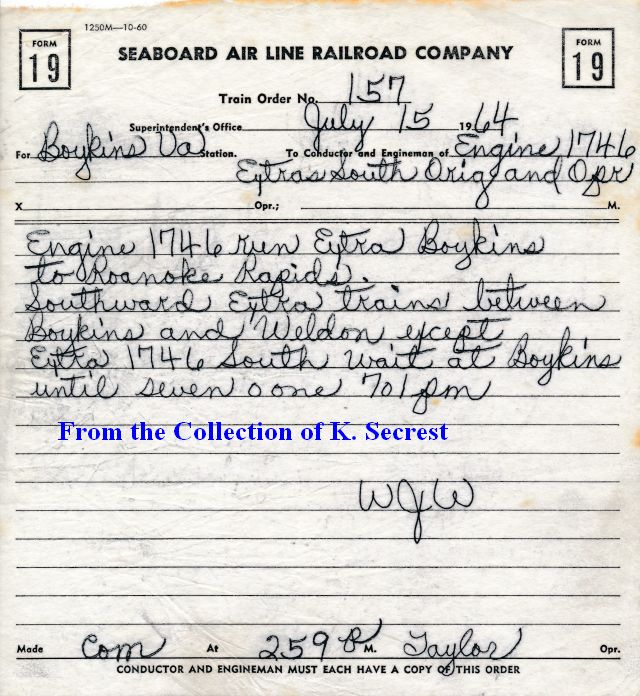 1250M—10-60
FORM 19
SEABOARD AIR LINE RAILROAD COMPANY
FORM 19
Train Order No. 157
Superintendent's Office July 15 1964
For Boykins Va Station. To Conductor and Engineman of Engine 1746
Extras South Orig and Opr
X Opr.; M.
Engine 1746 run Extra Boykins
to Roanoke Rapids.
Southward Extra trains between
Boykins and Weldon except
Extra 1746 South wait at Boykins
until seven o one 701 pm
From the Collection of K. Secrest
WJW
Made Com At 259 P M. Taylor Opr.
CONDUCTOR AND ENGINEMAN MUST EACH HAVE A COPY OF THIS ORDER